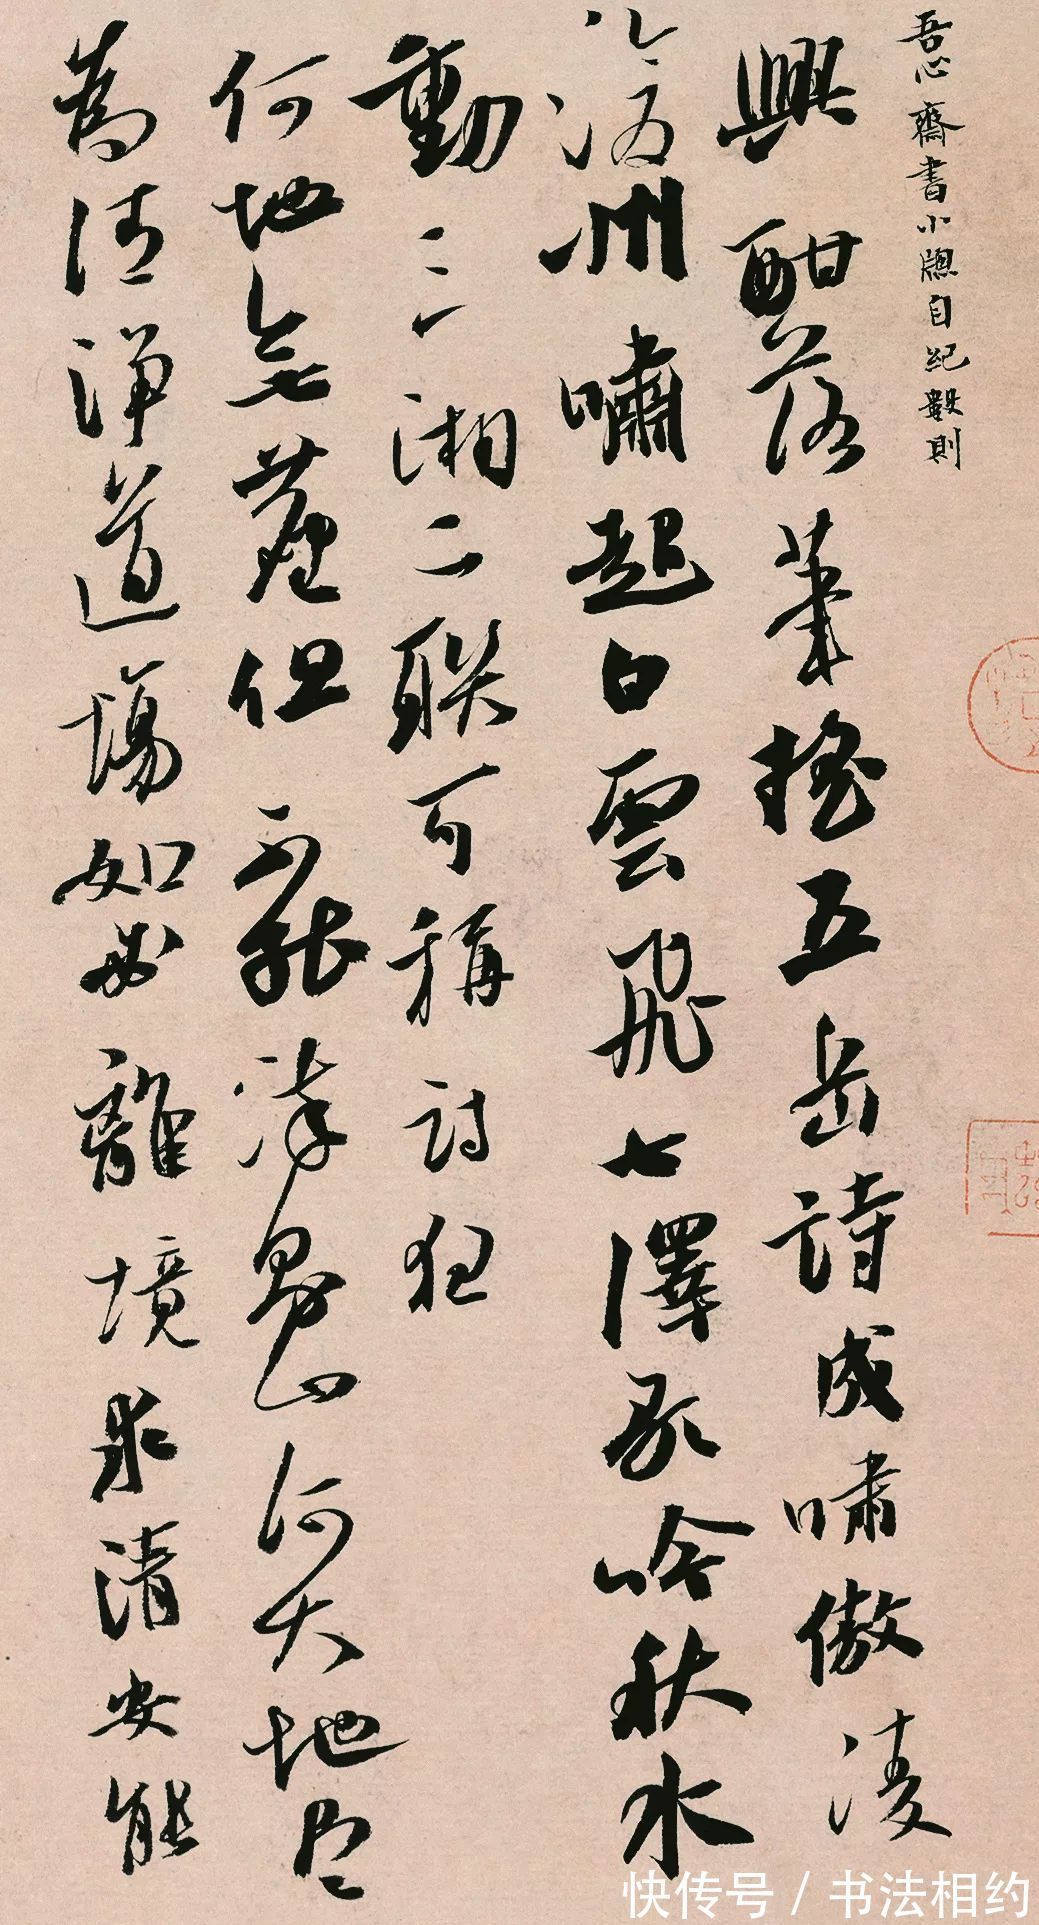 吾心齋書小牕自紀數則
興酣落筆搖五岳詩成嘯傲凌
滄州嘯起白雲飛七澤歌吟秋水
動三湘二聯可稱詩狂
何地無塵但不能染則山河大地盡
為清淨道場如必離境求清安能
快传号 / 书法相约